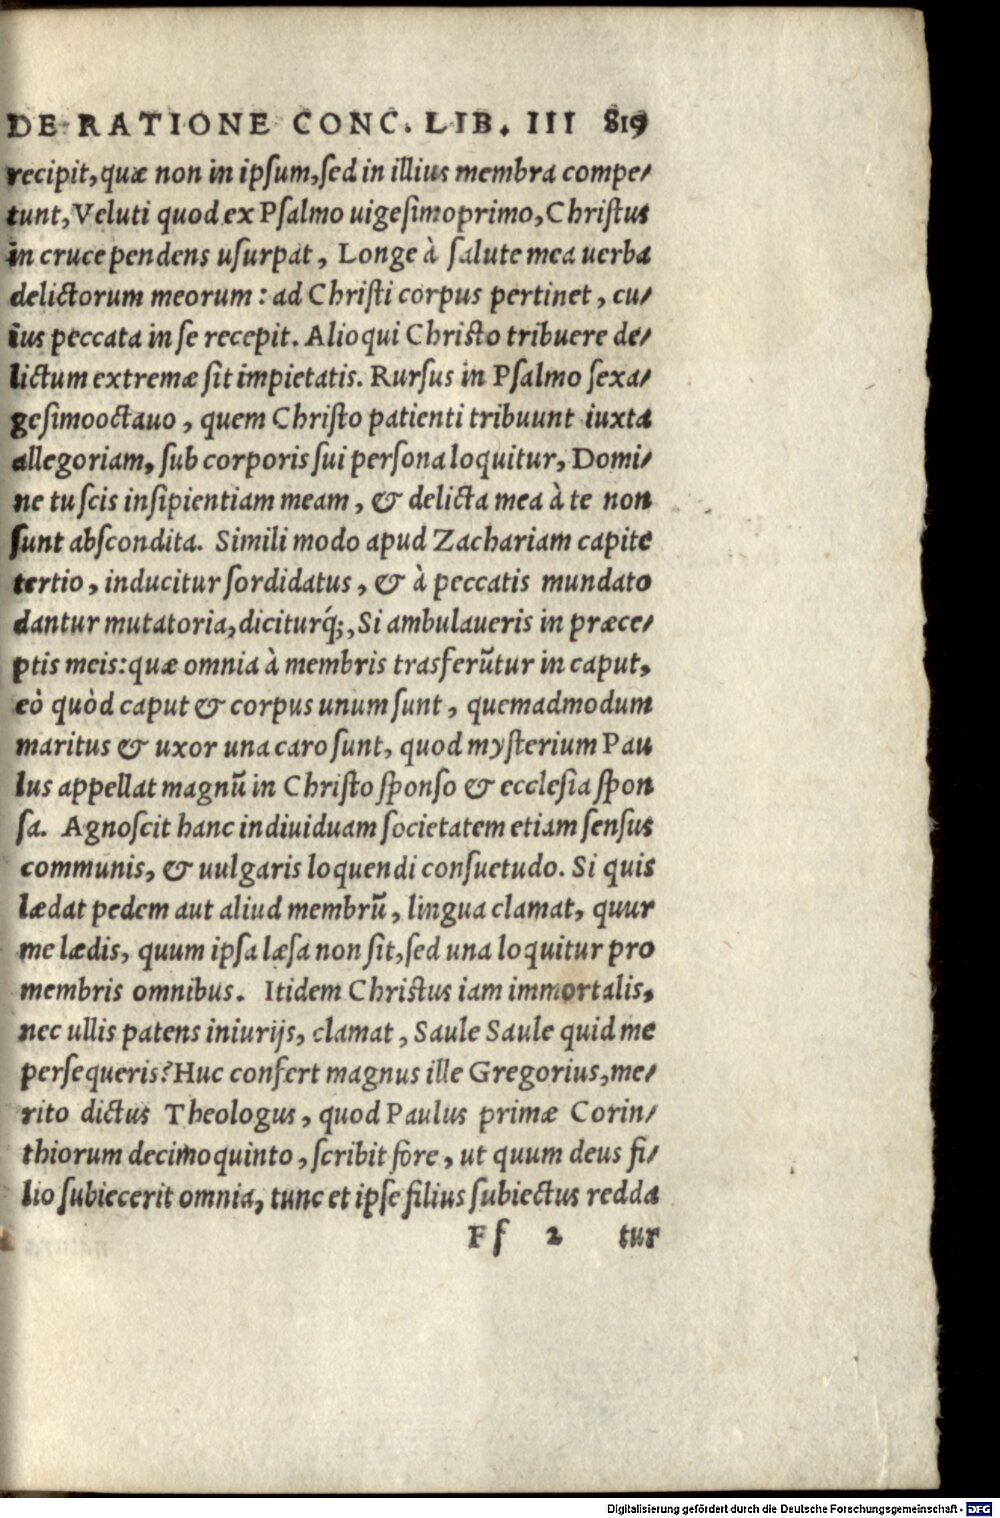 DE RATIONE CONC. LIB. III 819
recipit, quæ non in ipsum, sed in illius membra compe/
tunt, Veluti quod ex Psalmo uigesimoprimo, Christus
in cruce pendens usurpat, Longe à salute mea uerba
delictorum meorum: ad Christi corpus pertinet, cu/
ius peccata in se recepit. Alioqui Christo tribuere de/
lictum extremæ sit impietatis. Rursus in Psalmo sexa/
gesimooctauo, quem Christo patienti tribuunt iuxta
allegoriam, sub corporis sui persona loquitur, Domi/
ne tu scis insipientiam meam, & delicta mea à te non
sunt abscondita. Simili modo apud Zachariam capite
tertio, inducitur sordidatus, & à peccatis mundato
dantur mutatoria, diciturq́;, Si ambulaueris in præce/
ptis meis: quæ omnia à membris trasferūtur in caput,
eò quòd caput & corpus unum sunt, quemadmodum
maritus & uxor una caro sunt, quod mysterium Pau
lus appellat magnū in Christo sponso & ecclesia spon
sa. Agnoscit hanc indiuiduam societatem etiam sensus
communis, & uulgaris loquendi consuetudo. Si quis
lædat pedem aut aliud membrū, lingua clamat, quur
me lædis, quum ipsa læsa non sit, sed una loquitur pro
membris omnibus. Itidem Christus iam immortalis,
nec ullis patens iniurijs, clamat, Saule Saule quid me
persequeris? Huc confert magnus ille Gregorius, me/
rito dictus Theologus, quod Paulus primæ Corin/
thiorum decimoquinto, scribit fore, ut quum deus fi/
lio subiecerit omnia, tunc et ipse filius subiectus redda
Ff 2 tur
Digitalisierung gefördert durch die Deutsche Forschungsgemeinschaft - DFG